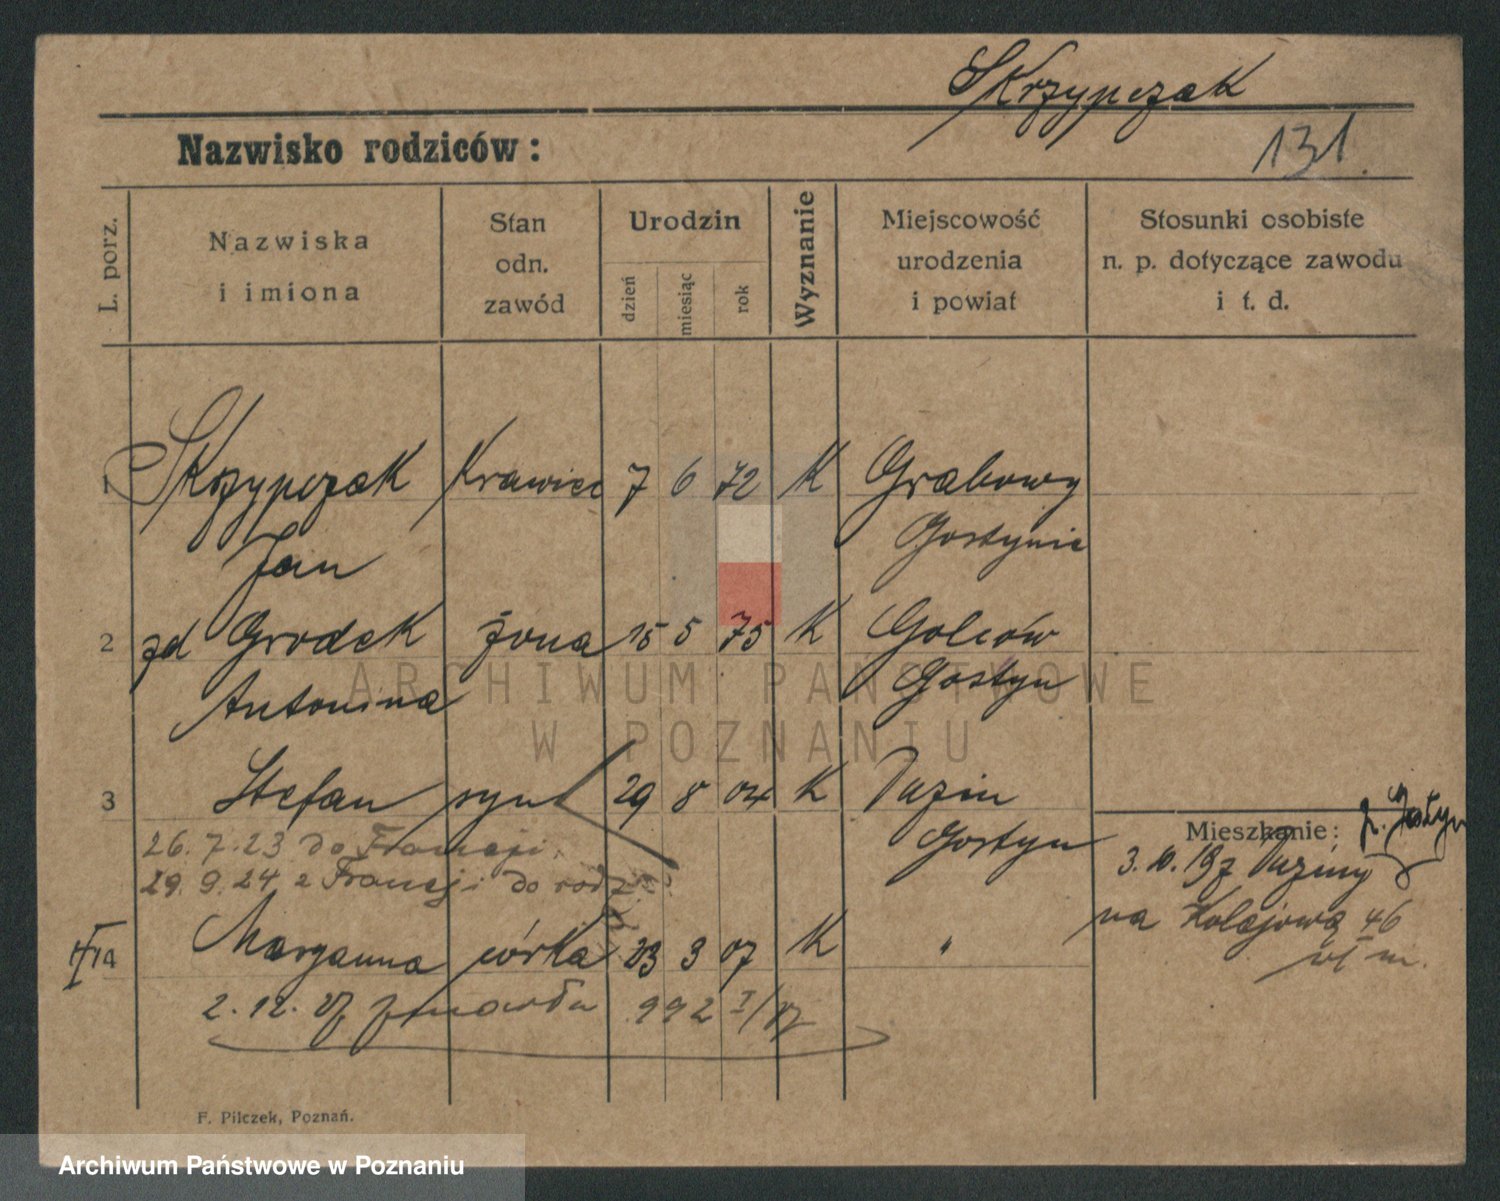 Skrzypczak
131.
Nazwisko rodziców:
L. porz.
Nazwiska
i imiona
Stan
odn.
zawód
Urodzin
dzień
miesiąc
rok
Wyznanie
Miejscowość
urodzenia
i powiat
Stosunki osobiste
n. p. dotyczące zawodu
i t. d.
1 Skrzypczak Krawiec 7 6 72 K Grabowy
Jan Gostynie
2 zd Grodek żona 15 5 75 K Golców
Antonina Gostyn
ARCHIWUM PAŃSTWOWE
W POZNANIU
3 Stefan syn 29 8 04 K
Gostyn
26.7.23 do Francji
29.9.24 z Francji do rodz.
Mieszkanie:
3.10.
na Kolejową 46
m.
4 Marganna córka 23 3 07 K "
2.12. 992 I/
F. Pilczek, Poznań.
Archiwum Państwowe w Poznaniu